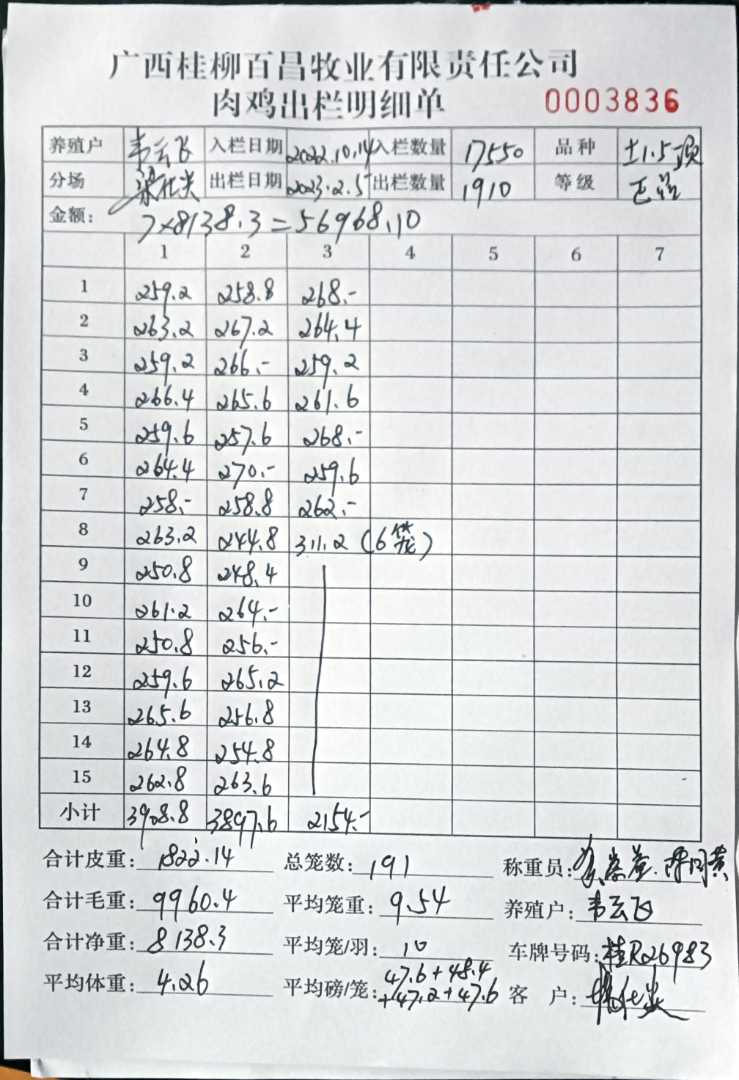 广西桂柳百昌牧业有限责任公司
肉鸡出栏明细单 0003836
养殖户 韦云飞 入栏日期 2022.10.14 入栏数量 17550 品种 土1.5项
分场 出栏日期 2023.2.5 出栏数量 1910 等级 正品
金额: 7×8138.3=56968.10
1 2 3 4 5 6 7
1 259.2 258.8 268.-
2 263.2 267.2 264.4
3 259.2 266.- 259.2
4 266.4 265.6 261.6
5 259.6 257.6 268.-
6 264.4 270.- 259.6
7 258.- 258.8 262.-
8 263.2 244.8 311.2 (6笼)
9 250.8 248.4
10 261.2 264.-
11 250.8 256.-
12 259.6 265.2
13 265.6 256.8
14 264.8 254.8
15 262.8 263.6
小计 3908.8 3897.6 2154.-
合计皮重: 1822.14 总笼数: 191 称重员:
合计毛重: 9960.4 平均笼重: 9.54 养殖户: 韦云飞
合计净重: 8138.3 平均笼/羽: 10 车牌号码: 桂R26983
平均体重: 4.26 平均磅/笼: 47.6+48.4+47.2+47.6 客户: